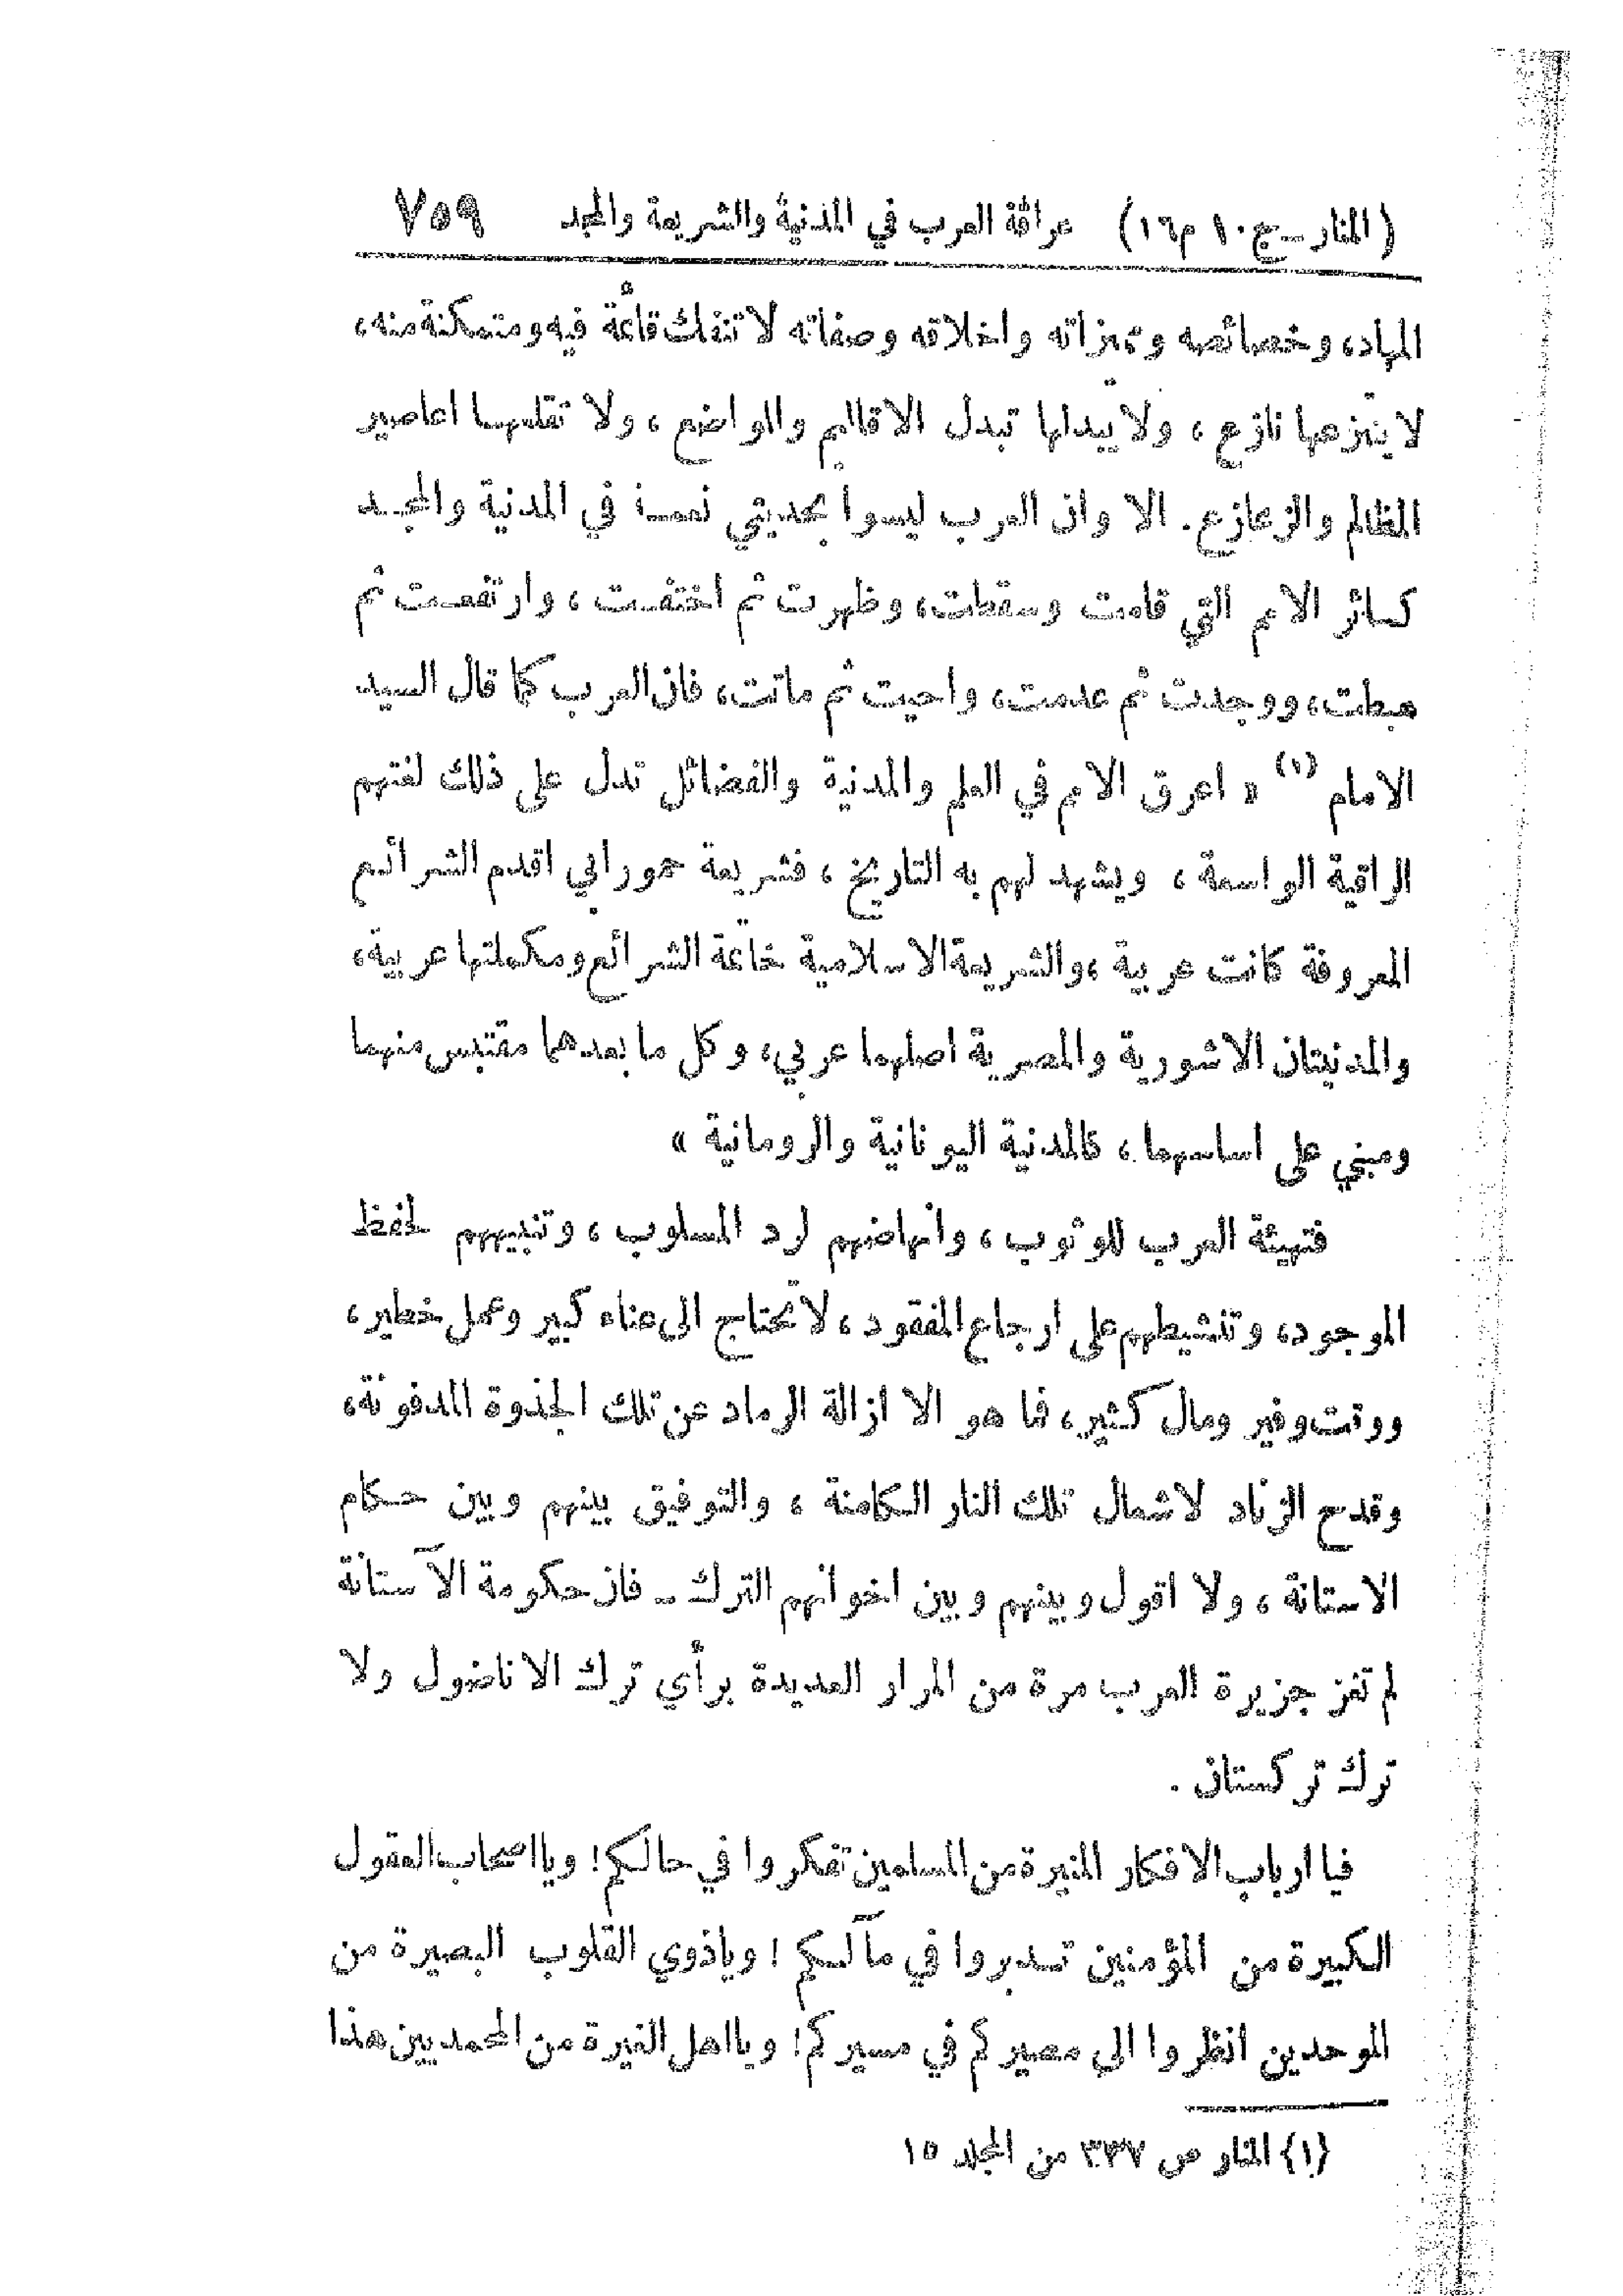 (المنار ـ ج ١٠ م ١٦) عراقة العرب في المدنية والشريعة والمجد ٧٥٩
المياد، وخصائصه ومميزاته واخلاقه وصفاته لا تنفك قائمة فيه ومتمكنة منه،
لا ينزعها نازع، ولا يبدلها تبدل الاقاليم والمواضع، ولا تقلبها اعاصير
المظالم والزعازع. الا وان العرب ليسوا بحديثي نعمة في المدنية والمجد
كسائر الامم التي قامت وسقطت، وظهرت ثم اختفت، وارتفعت ثم
هبطت، ووجدت ثم عدمت، واحيت ثم ماتت، فان العرب كما قال السيد
الامام (١) « اعرق الامم في العلم والمدنية والفضائل تدل على ذلك لغتهم
الراقية الواسعة، ويشهد لهم به التاريخ، فشريعة حمورابي اقدم الشرائع
المعروفة كانت عربية، والشريعة الاسلامية خاتمة الشرائع ومكملتها عربية،
والمدنيتان الاشورية والمصرية اصلهما عربي، وكل ما بعدهما مقتبس منهما
ومبني على اساسهما، كالمدنية اليونانية والرومانية »
فتهيئة العرب للوثوب، وانهاضهم لرد المسلوب، وتنبيههم لحفظ
الموجود، وتنشيطهم على ارجاع المفقود، لا تحتاج الى عناء كبير وعمل خطير،
ووقت وفير ومال كثير، فما هو الا ازالة الرماد عن تلك الجذوة المدفونة،
وقدح الزناد لاشعال تلك النار الكامنة، والتوفيق بينهم وبين حكام
الاستانة، ولا اقول وبينهم وبين اخوانهم الترك ــ فان حكومة الآستانة
لم تغز جزيرة العرب مرة من المرار العديدة برأي ترك الاناضول ولا
ترك تركستان.
فيا ارباب الافكار المنيرة من المسلمين تفكروا في حالكم! ويا اصحاب العقول
الكبيرة من المؤمنين تدبروا في مآلكم! وياذوي القلوب البصيرة من
الموحدين انظروا الى مصيركم في مسيركم! ويا اهل الغيرة من المحمديين هذا
{١} المنار ص ٣٣٧ من المجلد ١٥